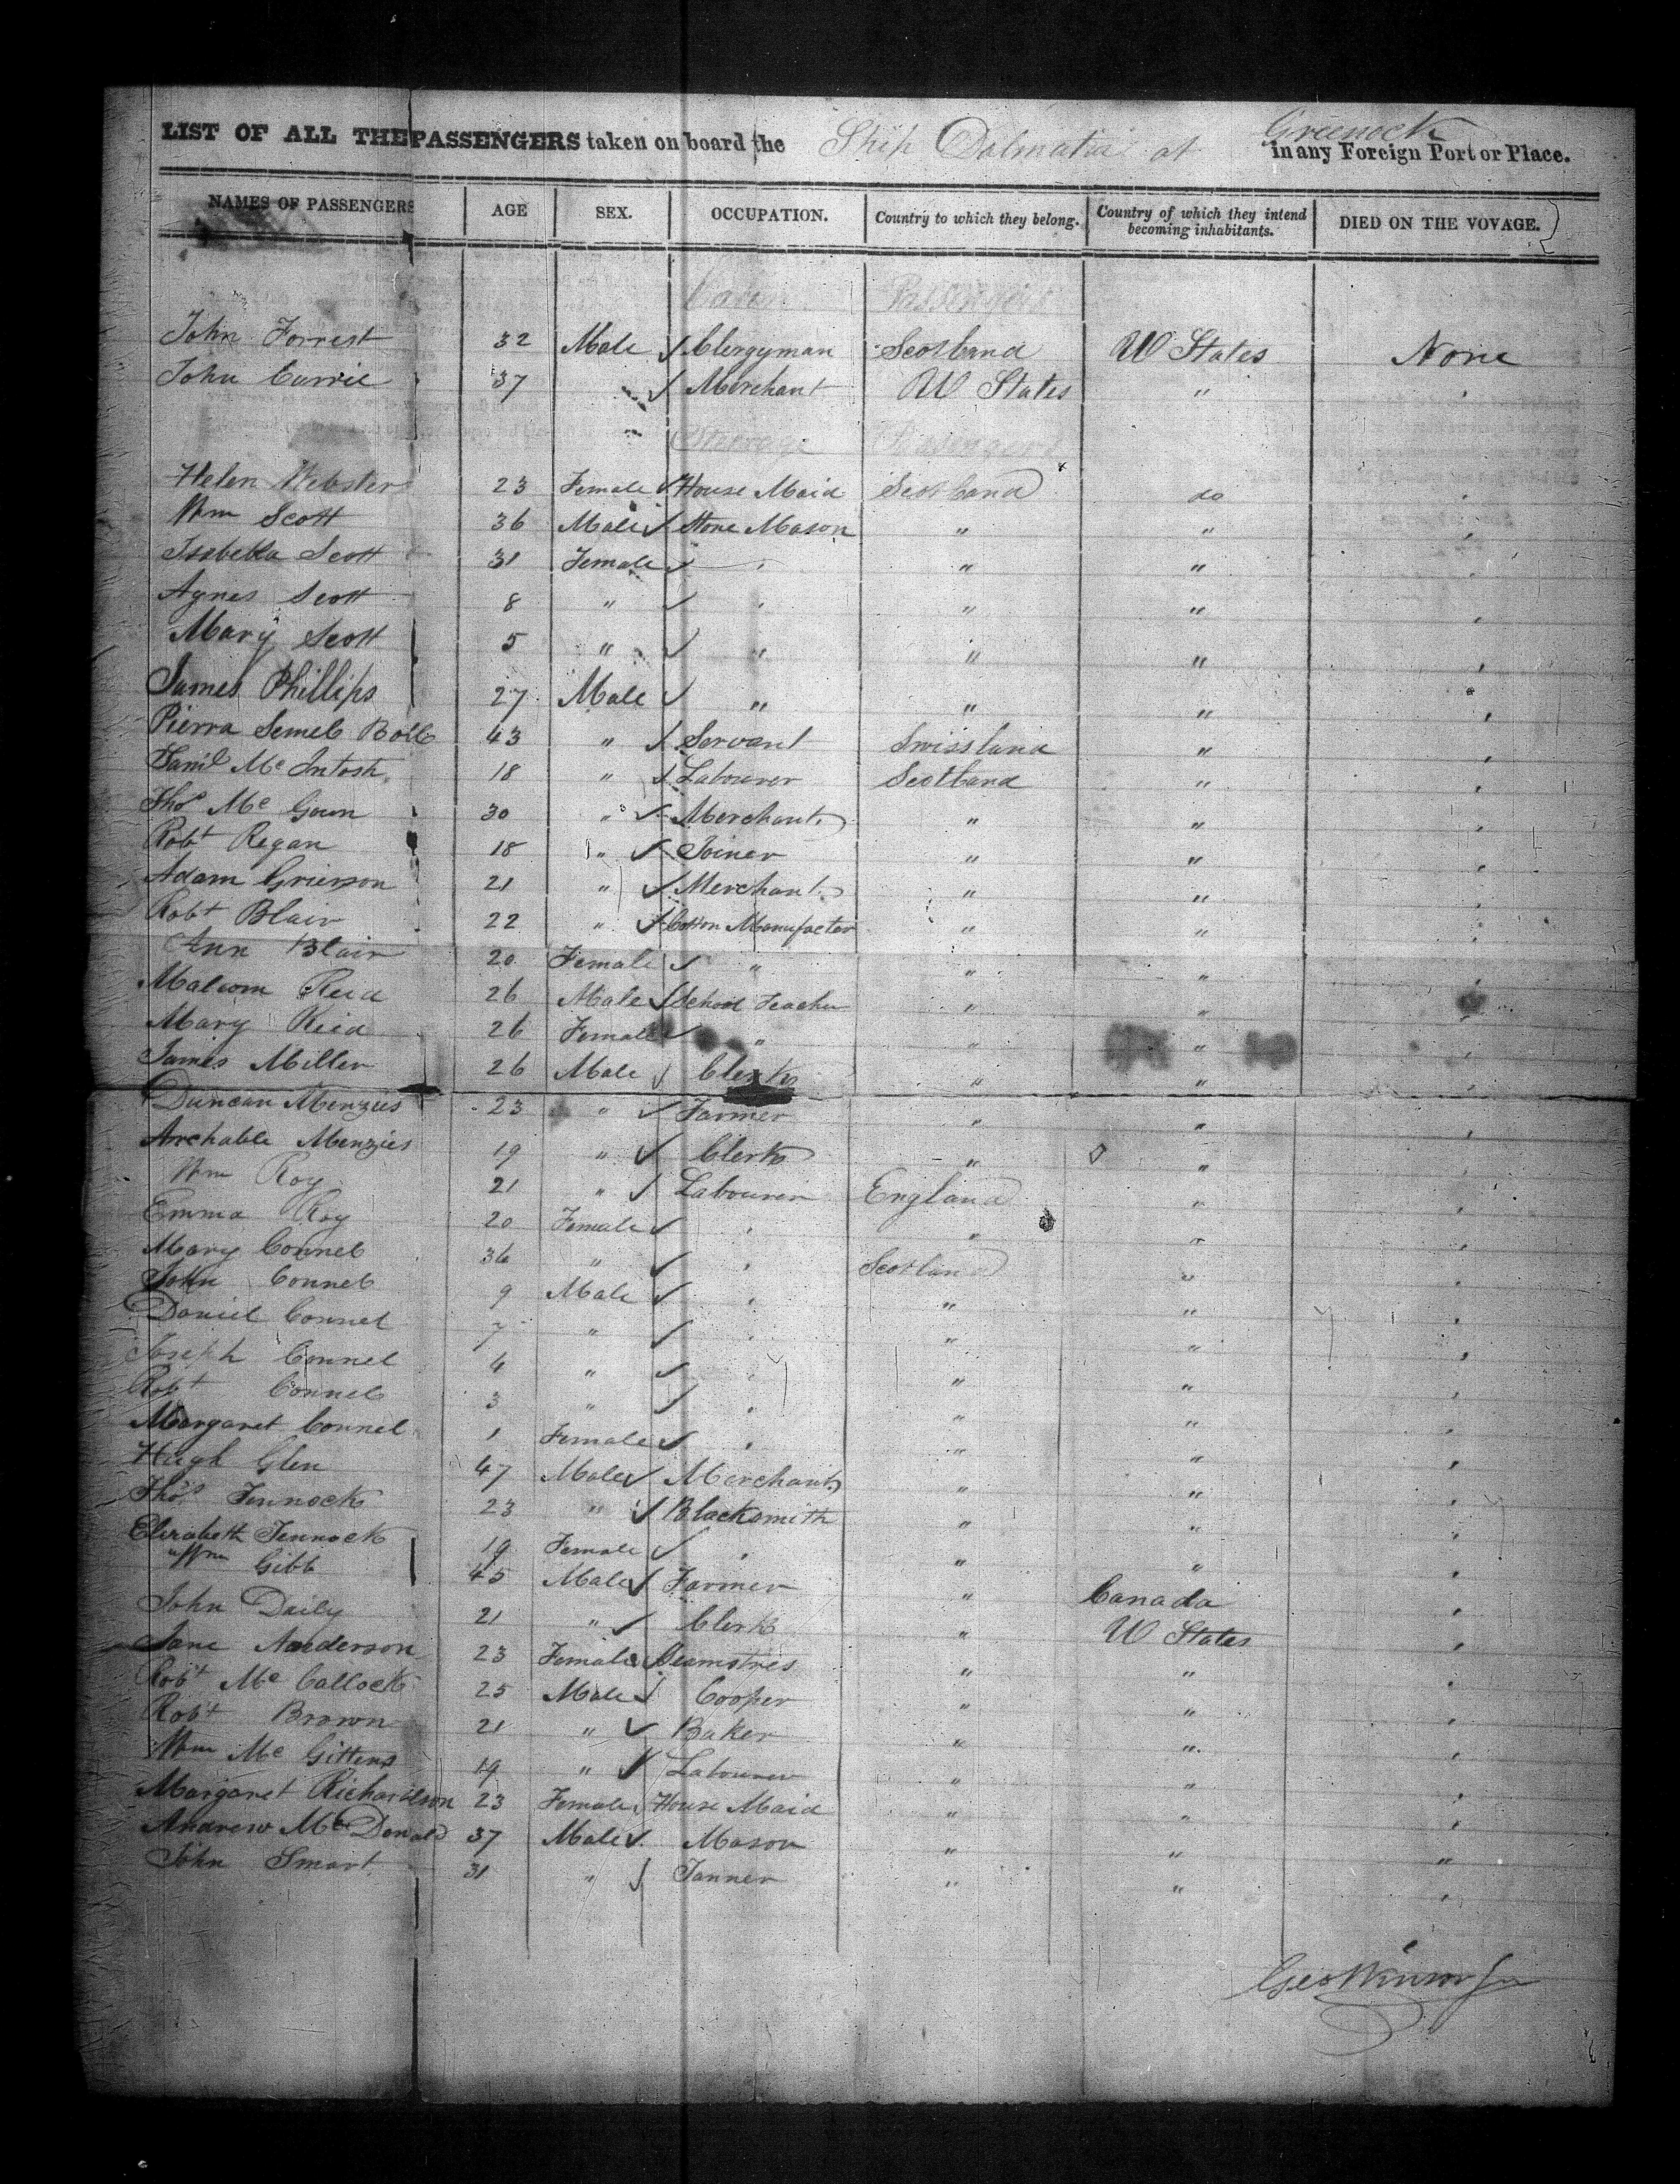 LIST OF ALL THE PASSENGERS taken on board the Ship Dalmatia at Greenock in any Foreign Port or Place.
NAMES OF PASSENGERS AGE SEX. OCCUPATION. Country to which they belong. Country of which they intend becoming inhabitants. DIED ON THE VOYAGE.
Cabin Passengers
John Forrest 32 Male Clergyman Scotland U States None
John Currie 37 " Merchant U States "
Steerage Passengers
Helen Webster 23 Female House Maid Scotland do
Wm Scott 36 Male Stone Mason " "
Isabella Scott 31 Female " " "
Agnes Scott 8 " " " "
Mary Scott 5 " " " "
James Phillips 27 Male " " "
Pierra 43 " Servant Swissland "
Danil Mc Intosh 18 " Labourer Scotland "
Thos Mc Goun 30 " Merchant " "
Robt Regan 18 " Joiner " "
Adam Grierson 21 " Merchant " "
Robt Blair 22 " Cotton Manufacter " "
Ann Blair 20 Female " " "
Malcom Reid 26 Male School Teacher " "
Mary Reid 26 Female " " "
James Miller 26 Male Clerk " "
Duncan Menzies 23 " Farmer " "
Archable Menzies 19 " Clerk " "
Wm Roy 21 " Labourer England "
Emma Roy 20 Female " " "
Mary Connel 36 " " Scotland "
John Connel 9 Male " " "
Daniel Connel 7 " " " "
Joseph Connel 4 " " " "
Robt Connel 3 " " " "
Margaret Connel 1 Female " " "
Hugh Glen 47 Male Merchant " "
Thos Tennock 23 " Blacksmith " "
Elizabeth Tennock 19 Female " " "
Wm Gibb 45 Male Farmer " Canada
John Daily 21 " Clerk " U States
Jane Anderson 23 Female Seamstres " "
Robt Mc Callock 25 Male Cooper " "
Robt Brown 21 " Baker " "
Wm Mc Gittens 19 " Labourer " "
Margaret Richardson 23 Female House Maid " "
Andrew Mc Donald 37 Male Mason " " "
John Smart 31 " Tanner " "
Geo Winsor Jr